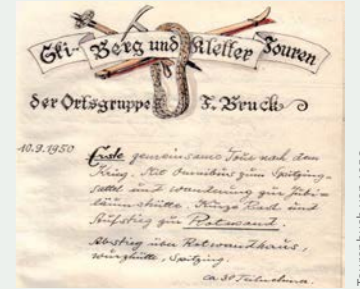 Ski- Berg und Kletter Touren
der Ortsgruppe F. Bruck
10.9.1950
Erste gemeinsame Tour nach dem
Krieg. Mit Omnibus zum Spitzing-
sattel und wanderung zur Jubi-
läumshütte. Kurze Rast und
Aufstieg zur Rotwand.
Abstieg über Rotwandhaus,
wurzhütte, Spitzing.
ca 30 Teilnehmer.